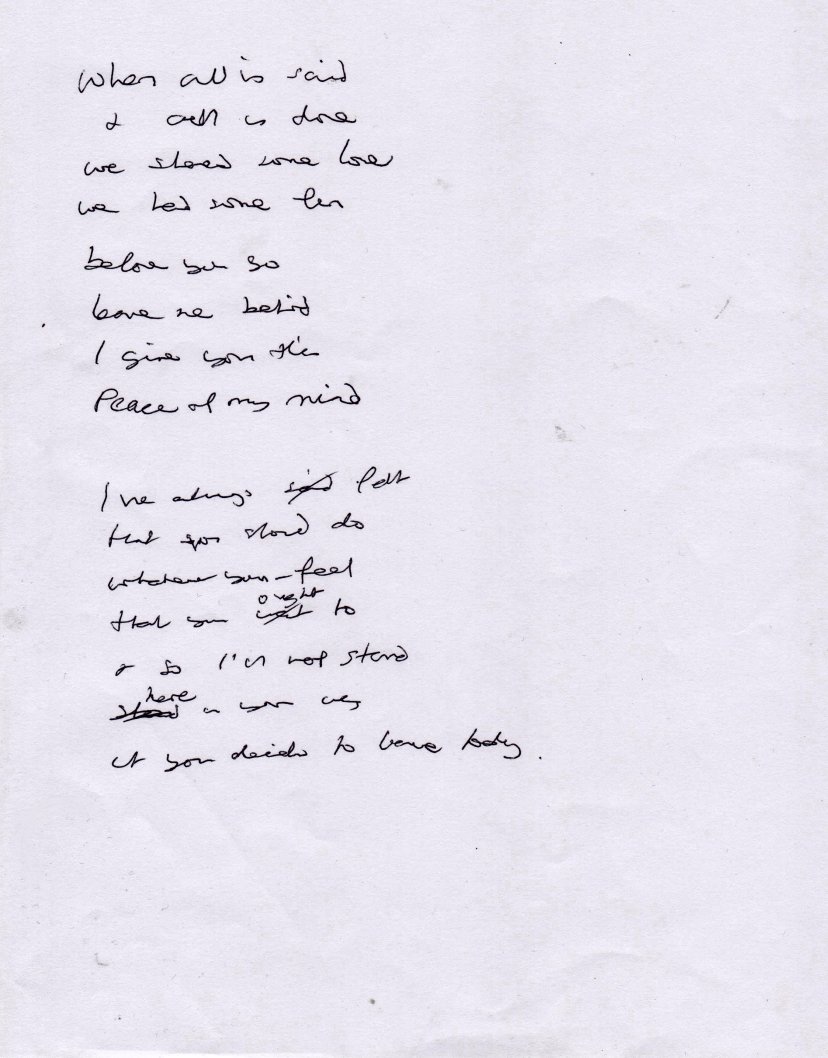 When all is said
& all is done
we shared some love
we had some fun
before you go
leave me behind
I give you this
Peace of my mind
I've always said felt
that you should do
whatever you feel
that you ought to
& so I'll not stand
here in your way
if you decide to leave today.